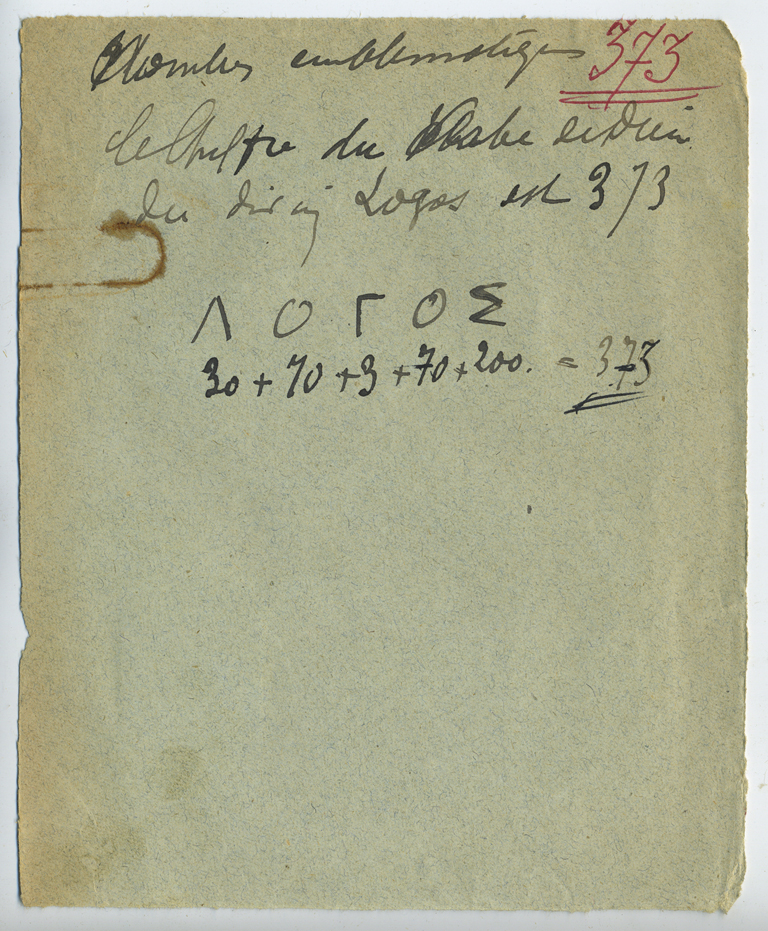 Nombres emblematiques 373
le Chiffre du Verbe
du divin Logos est 373
Λ Ο Γ Ο Σ
30 + 70 + 3 + 70 + 200. = 373